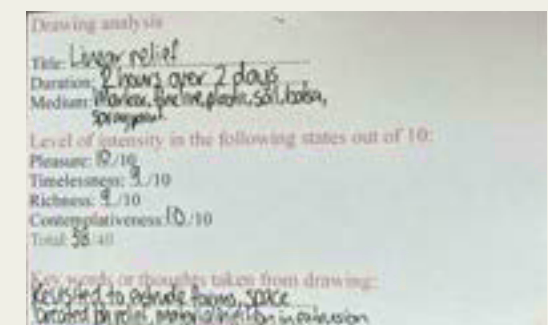 Drawing analysis
Title: Linear relief
Duration: 2 hours over 2 days
Medium: Marker, fineline, plastic, soil, balsa,
spraypaint
Level of intensity in the following states out of 10:
Pleasure: 10/10
Timelessness: 9/10
Richness: 9/10
Contemplativeness: 10/10
Total: 38/40
Key words or thoughts taken from drawing:
Revisited to extrude forms, space
created in relief, material in extrusion